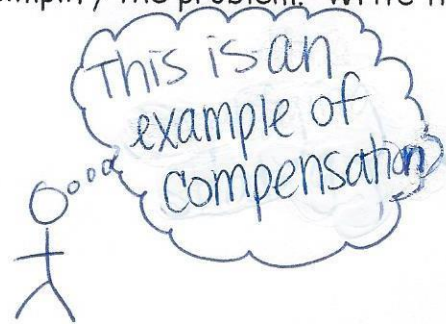 the problem. Write
This is an
example of
compensation